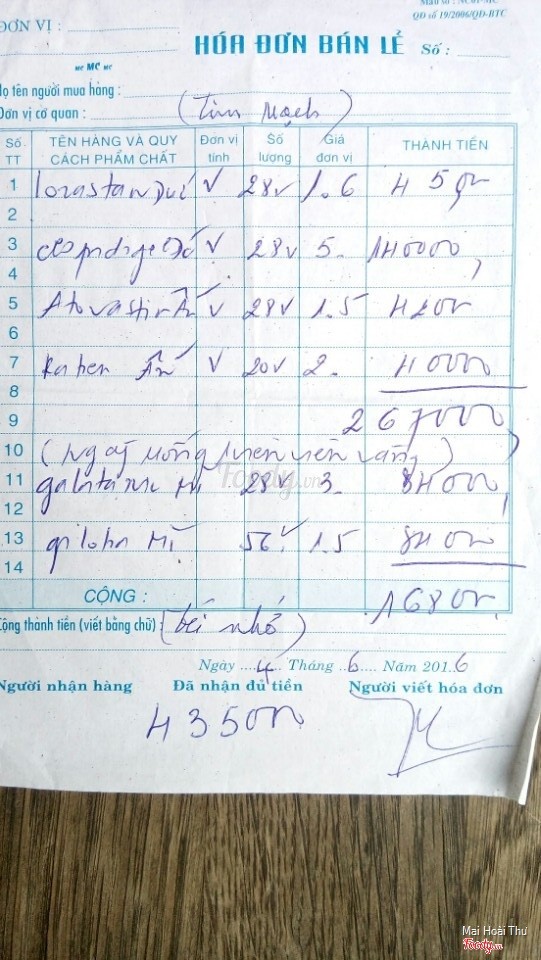 Mẫu số : NC01-MC
QĐ số 19/2006/QĐ-BTC
ĐƠN VỊ :
HÓA ĐƠN BÁN LẺ Số :
MC
Họ tên người mua hàng :
Đơn vị cơ quan : (Tim Mạch)
Số TT TÊN HÀNG VÀ QUY CÁCH PHẨM CHẤT Đơn vị tính Số lượng Giá đơn vị THÀNH TIỀN
1 lorastan Đức v 28v 1.6 45
2
3 v 28v 5. 140000
4
5 Atorvastin Ấn v 28v 1.5 42
6
7 Raben Ấn v 20v 2. 40000
8
9 267000
10 (Ngày uống viên vàng)
11 28v 3. 84000
12
13 giloba Mĩ 56v 1.5 84000
14
CỘNG : 168
Cộng thành tiền (viết bằng chữ) : (bé nhỏ)
Ngày 4 Tháng 6 Năm 2016
Người nhận hàng Đã nhận đủ tiền Người viết hóa đơn
435000
Foody.vn
Mai Hoài Thư
Foody.vn